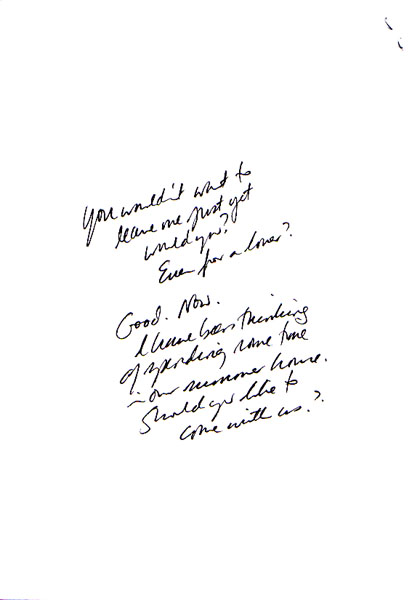 You wouldn't want to
leave me just yet
would you?
Even for a lover?
Good. Now.
I have been thinking
of spending some time
in our summer house.
Should you like to
come with us?